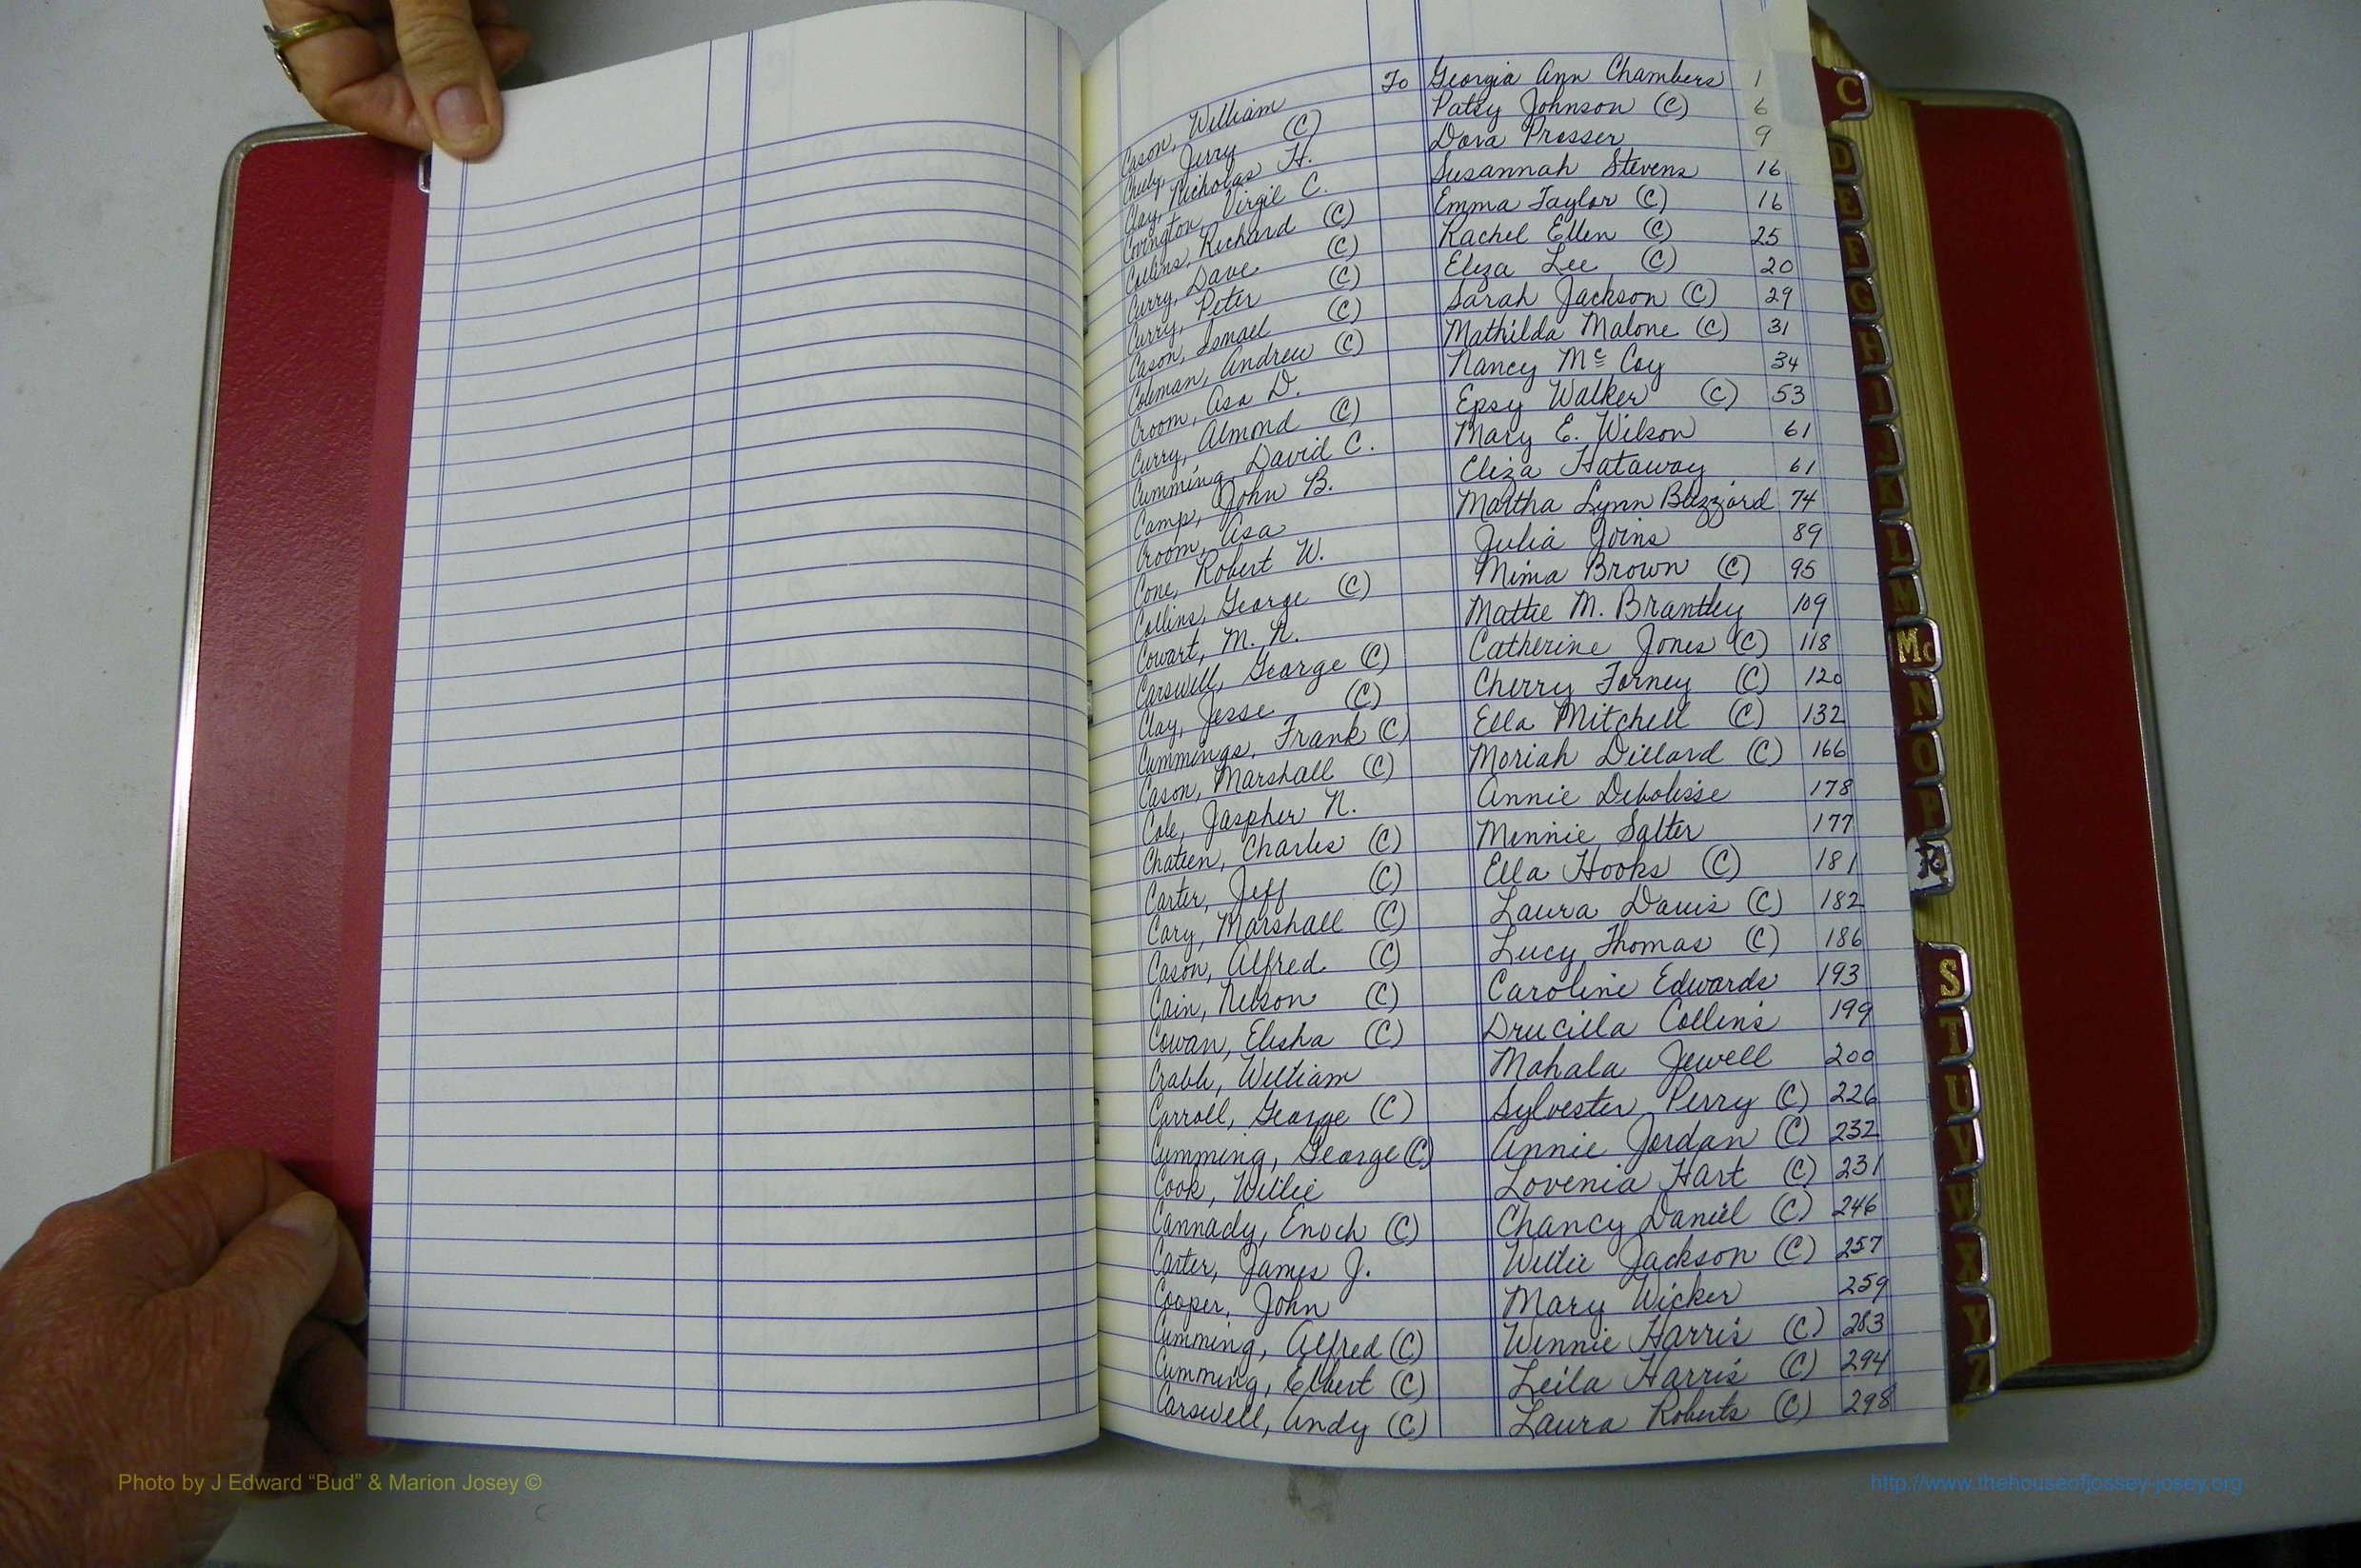 Cason, William To Georgia Ann Chambers 1
Jerry (C) Patsy Johnson (C) 6
Clay, Nicholas H. Dora Prosser 9
Covington, Virgil C. Susannah Stevens 16
Collins, Richard (C) Emma Taylor (C) 16
Curry, Dave (C) Rachel Ellen (C) 25
Curry, Peter (C) Eliza Lee (C) 20
Cason, Ismael (C) Sarah Jackson (C) 29
Coleman, Andrew (C) Mathilda Malone (C) 31
Croom, Asa D. Nancy Mc Coy 34
Curry, Almond (C) Epsy Walker (C) 53
Cumming, David C. Mary E. Wilson 61
Camp, John B. Eliza Hataway 61
Croom, Asa Martha Lynn Buzzard 74
Cone, Robert W. Julia Joins 89
Collins, George (C) Mima Brown (C) 95
Cowart, M. N. Mattie M. Brantley 109
Carswell, George (C) Catherine Jones (C) 118
Clay, Jesse (C) Cherry Forney (C) 120
Cummings, Frank (C) Ella Mitchell (C) 132
Cason, Marshall (C) Moriah Dillard (C) 166
Cole, Jaspher N. Annie 178
Chatien, Charles (C) Mennie Salter 177
Carter, Jeff (C) Ella Hooks (C) 181
Cary, Marshall (C) Laura Davis (C) 182
Cason, Alfred (C) Lucy Thomas (C) 186
Cain, Nelson (C) Caroline Edwards 193
Cowan, Elisha (C) Drucilla Collins 199
Crabb, William Mahala Jewell 200
Carroll, George (C) Sylvester Perry (C) 226
Cumming, George (C) Annie Jordan (C) 232
Cook, Willie Lovenia Hart (C) 231
Cannady, Enoch (C) Chancy Daniel (C) 246
Carter, James J. Willie Jackson (C) 257
Cooper, John Mary Wicker 259
Cumming, Alfred (C) Winnie Harris (C) 283
Cumming, Elbert (C) Leila Harris (C) 294
Carswell, Andy (C) Laura Roberts (C) 298
C
D
E
F
G
H
I
J
K
L
M
Mc
N
O
P
R
S
T
U
V
W
X
Y
Z
Photo by J Edward “Bud” & Marion Josey ©
http://www.thehouseofjossey-josey.org